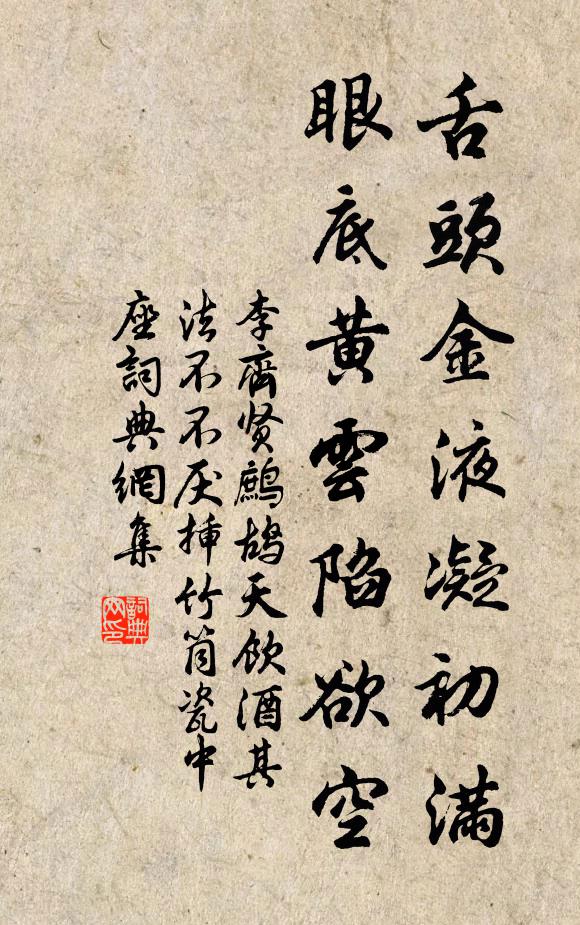 舌頭金液凝初滿
眼底黃雲陷欲空
李齊贤鷓鴣天飲酒其
法不不厌挿竹筒瓷中
座詞典網集
詞典网印